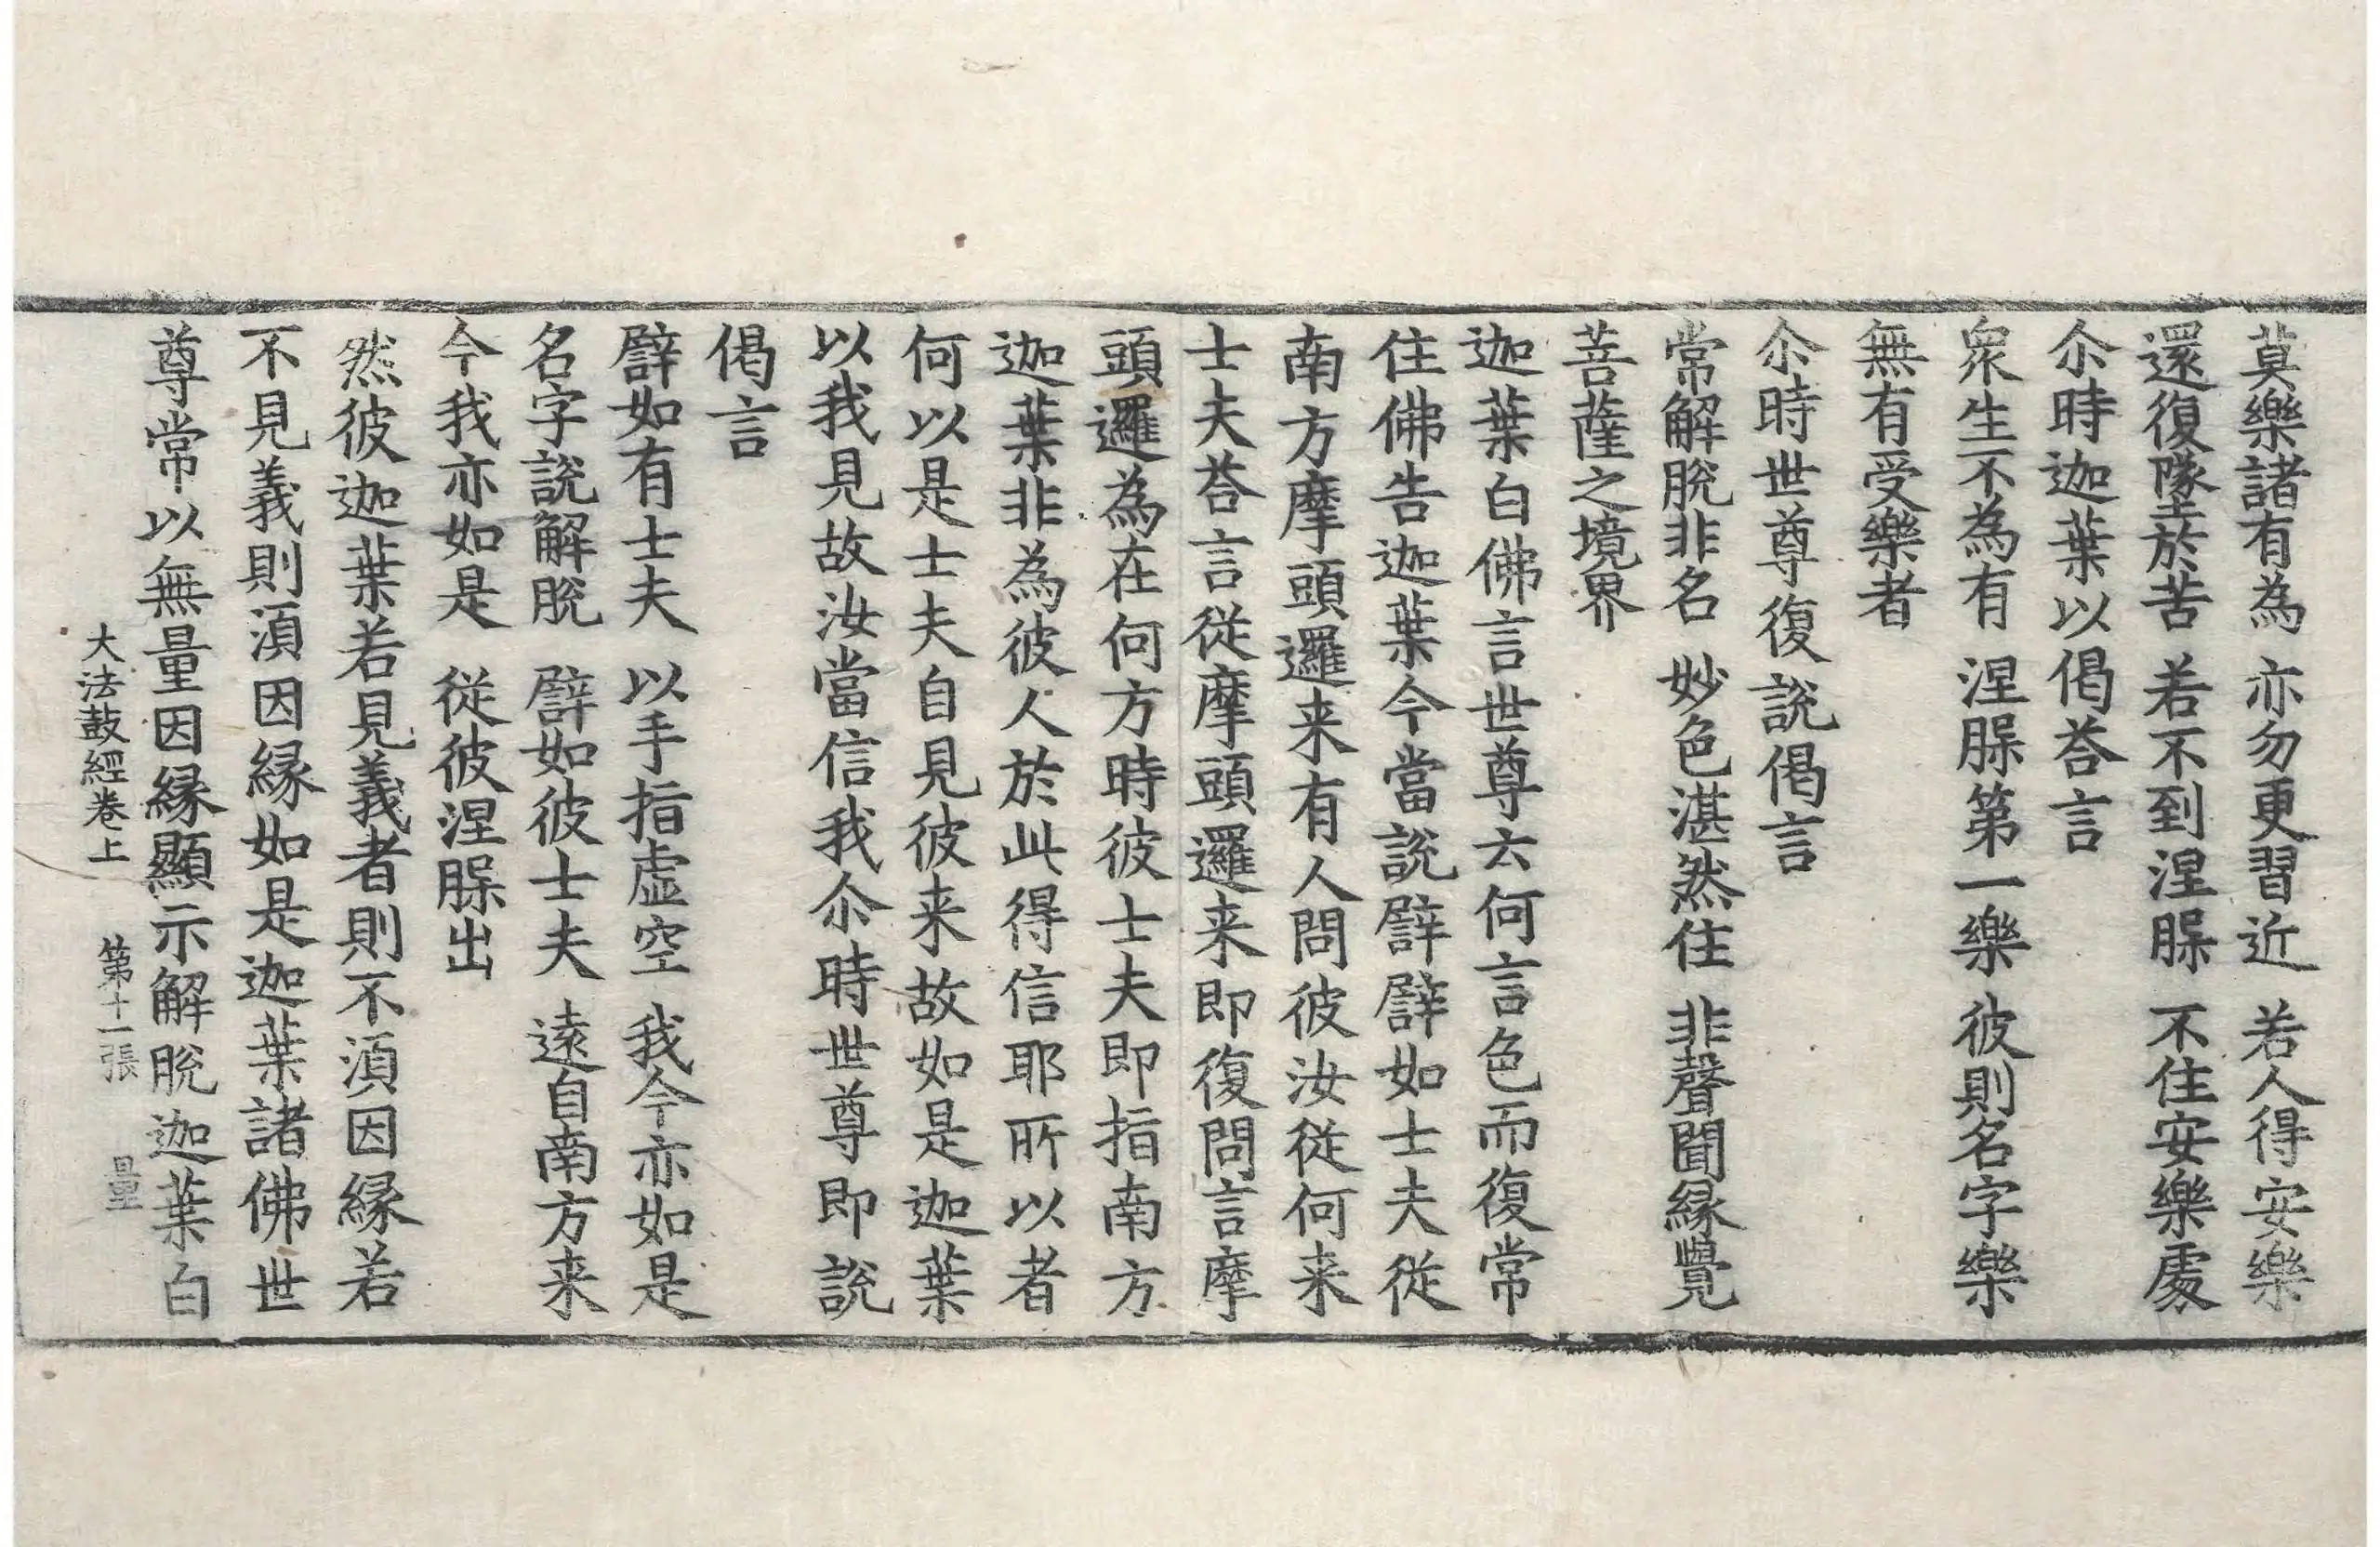 莫樂諸有為　亦勿更習近　若人得安樂
還復墜於苦　若不到涅槃　不住安樂處
尒時迦葉以偈荅言
衆生不為有　涅槃第一樂　彼則名字樂
無有受樂者
尒時世尊復說偈言
常解脫非名　妙色湛然住　非聲聞縁覺
菩薩之境界
迦葉白佛言世尊云何言色而復常
住佛告迦葉今當說譬譬如士夫從
南方摩頭邏来有人問彼汝從何来
士夫荅言從摩頭邏来即復問言摩
頭邏為在何方時彼士夫即指南方
迦葉非為彼人於此得信耶所以者
何以是士夫自見彼来故如是迦葉
以我見故汝當信我尒時世尊即說
偈言
譬如有士夫　以手指虛空　我今亦如是
名字說解脫　譬如彼士夫　遠自南方来
今我亦如是　從彼涅槃出
然彼迦葉若見義者則不湏因縁若
不見義則湏因縁如是迦葉諸佛世
尊常以無量因縁顯示解脫迦葉白
大法鼓經卷上　第十一張　量